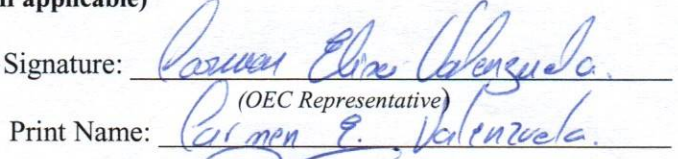 if applicable)
Signature: Carmen Elisa Valenzuela.
(OEC Representative)
Print Name: Carmen E. Valenzuela.